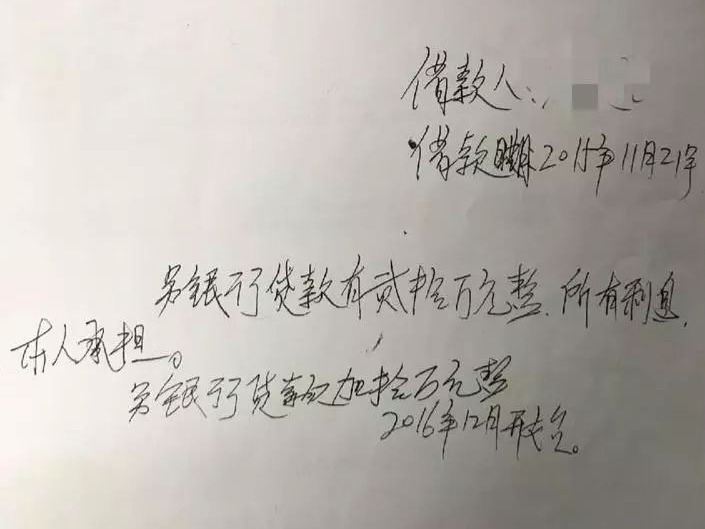 借款人:
借款期2015年11月21号
另银行贷款有贰拾万元整、所有利息,
本人承担。
另银行贷款加拾万元整
2016年12月开始。